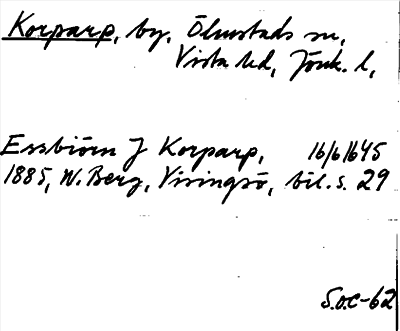 Korparp, by, Ölmstads sn,
Vista hd, Jönk. l,
Essbiörn J Korparp, 16/6 1645
1885, W. Berg, Visingsö, bil. s. 29
S.O.C-62